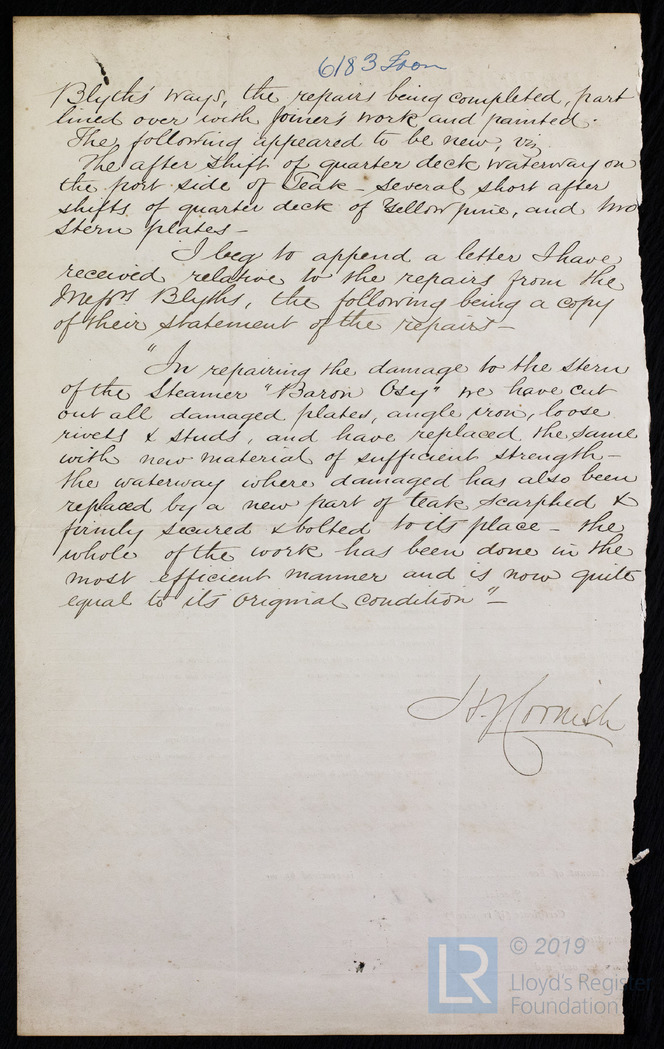 6183 Iron
Blyths' ways, the repairs being completed, part
lined over with joiner's work and painted.
The following appeared to be new, viz
The after shift of quarter deck waterway on
the port side of Teak - several short after
shifts of quarter deck of Yellow pine, and two
Stern plates -
I beg to append a letter I have
received relative to the repairs from the
Messrs Blyths, the following being a copy
of their statement of the repairs -
"In repairing the damage to the stern
of the Steamer "Baron Osy" we have cut
out all damaged plates, angle iron, loose
rivets & studs, and have replaced the same
with new material of sufficient strength -
the waterway where damaged has also been
replaced by a new part of teak scarphed &
firmly secured & bolted to its place - the
whole of the work has been done in the
most efficient manner and is now quite
equal to its original condition" -
H. J. Cornish
LR
© 2019
Lloyd's Register
Foundation